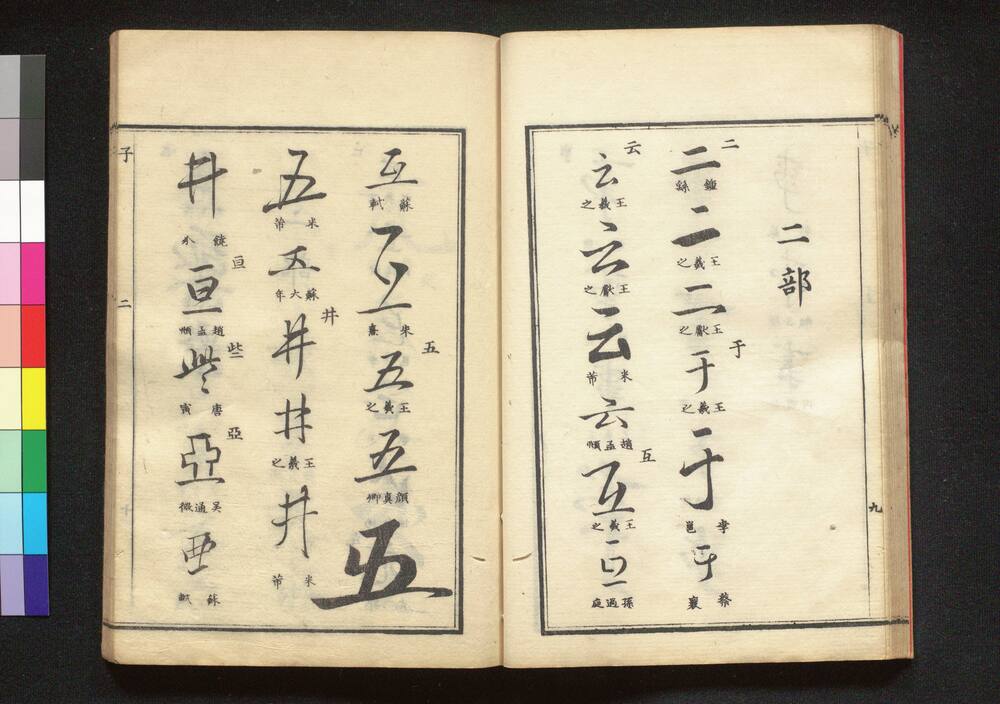 二部
二 二 鍾繇 二 王羲之 二 王獻之 于 于 王羲之 于 李邕 于 蔡襄
云 云 王羲之 云 王獻之 云 米芾 云 趙孟頫 互 互 王羲之 互 孫過庭
九
互 蘇軾 互 朱熹 五 五 王羲之 五 顏真卿 五
五 米芾 五 蘇大年 井 井 井 王羲之 井 米芾
井 饒介 亘 亘 趙孟頫 些 些 唐寅 亞 亞 吳通微 亞 蘇軾
子 二